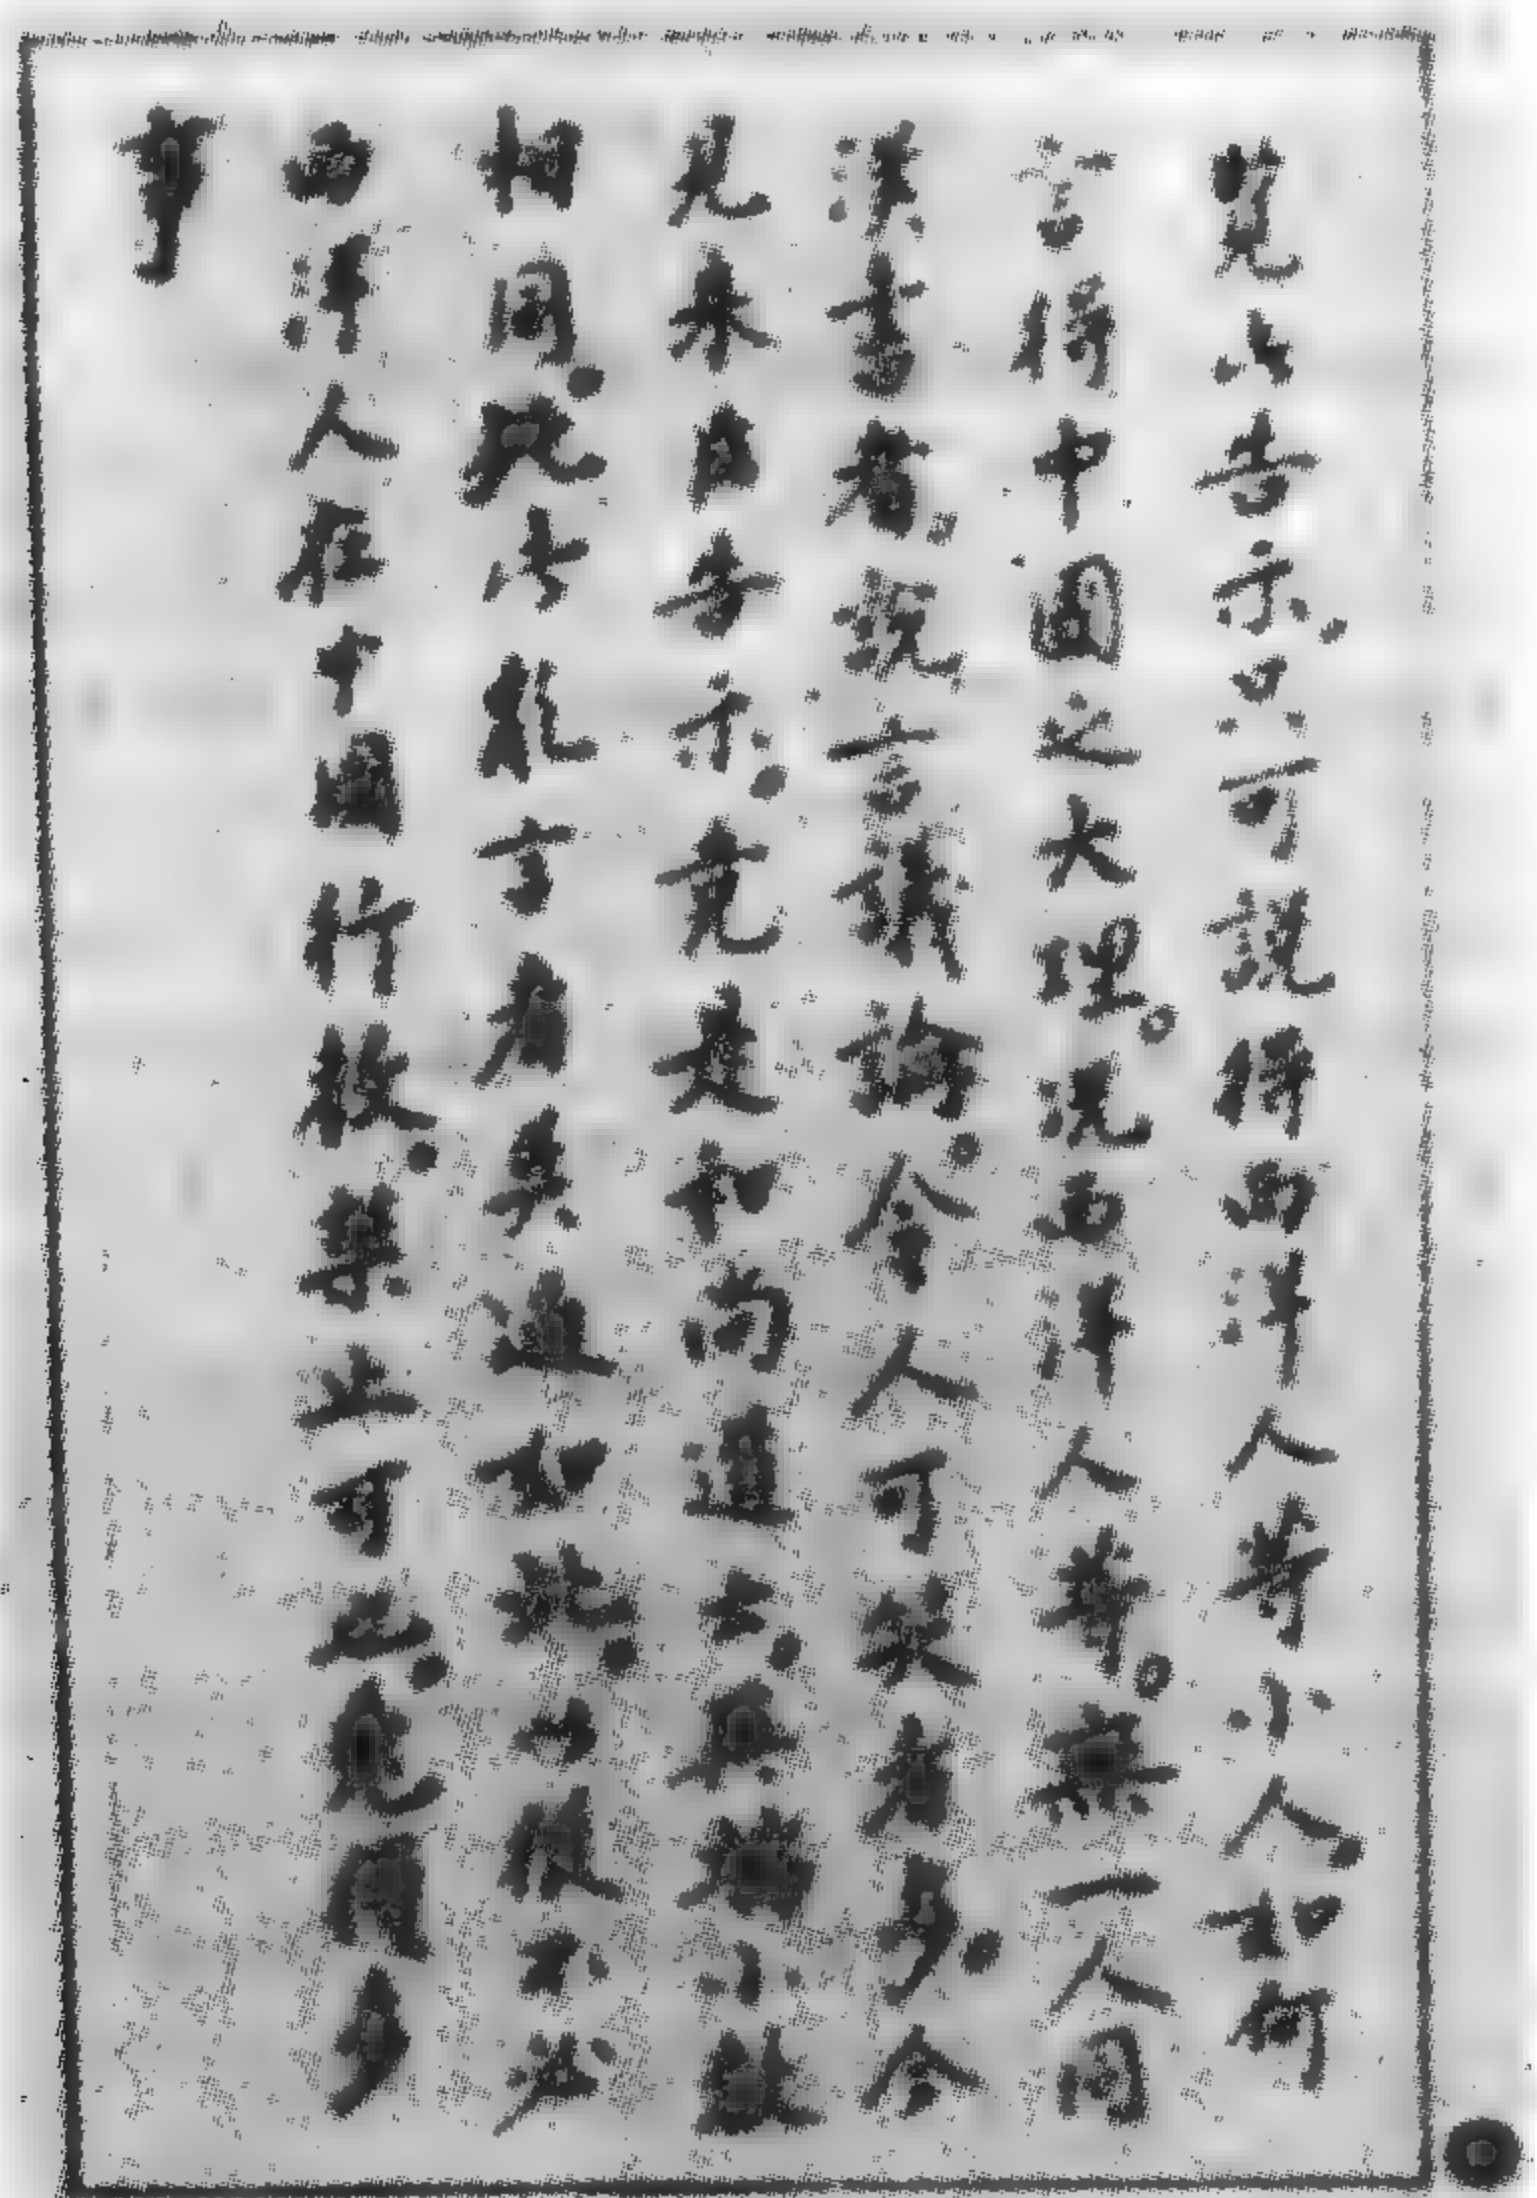 覽此告示。只可說得西洋人等小人。如何
言得中國之大理。況西洋人等。無一人同
漢書者。說言議論。令人可笑者多。今
見來臣告示。竟是和尚道士。異端小教
相同。比比亂言者莫過如此。以後不必
西洋人在中國行教。禁止可也。免得多
事